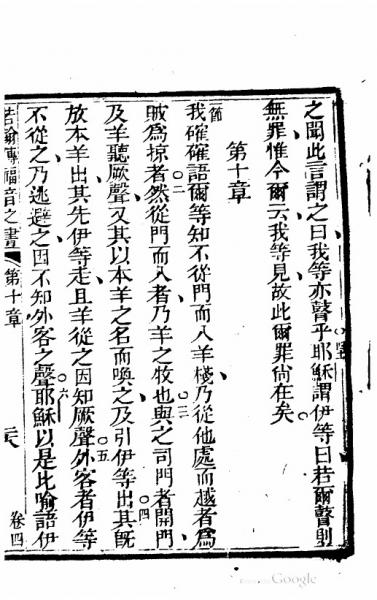 之聞此言謂之曰我等亦瞽乎耶穌謂伊等曰若爾瞽則
無罪惟今爾云我等見故此爾罪尚在矣
第十章
節
我確確語爾等知不從門而入羊棧乃從他處而越者為
賊為掠者○二然從門而入者乃羊之牧也○三與之司門者開門
及羊聽厥聲又其以本羊之名而喚之及引伊等出○四其既
放本羊出其先伊等走且羊從之因知厥聲○五外客者伊等
不從之乃逃避之因不知外客之聲○六耶穌以是比喻語伊
若翰傳福音之書 第十章 卷四
Google